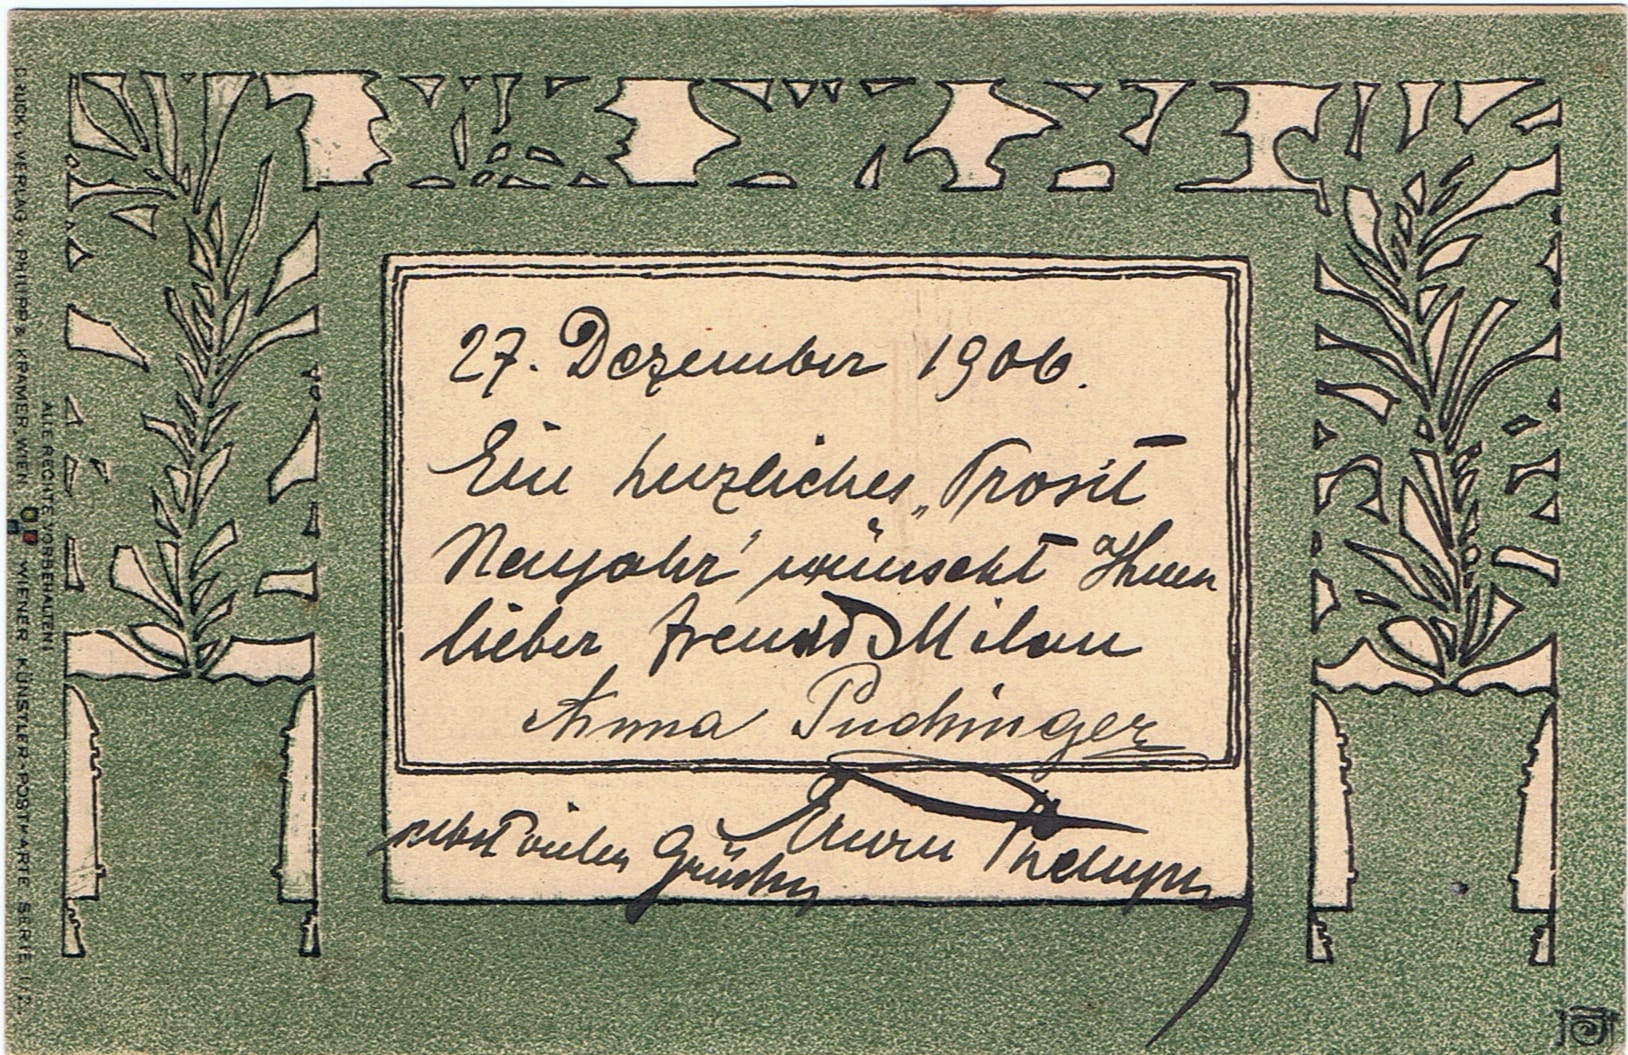 27. Dezember 1906.
Ein herzliches „Prosit
Neujahr" wünscht Ihnen
lieber Freund Milan
Anna Puchinger
nebst vielen Grüßen
Erwin
DRUCK v. VERLAG v. PHILIPP & KRAMER, WIEN. WIENER KÜNSTLER-POSTKARTE SERIE II/2.
ALLE RECHTE VORBEHALTEN